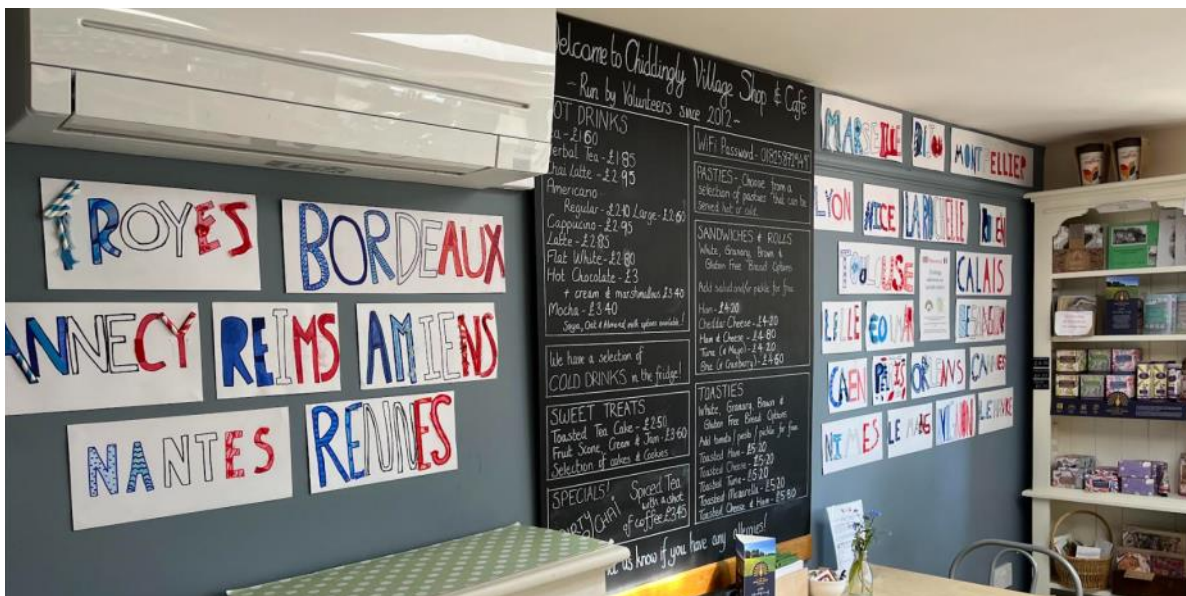 TROYES
BORDEAUX
ANNECY
REIMS
AMIENS
NANTES
RENNES
Welcome to Chiddingly Village Shop & Café
- Run by Volunteers since 2012 -
HOT DRINKS
Tea - £1.60
Herbal Tea - £1.85
Chai Latte - £2.95
Americano
Regular - £2.40 Large - £2.60
Cappucino - £2.95
Latte - £2.85
Flat White - £2.80
Hot Chocolate - £3
+ cream & marshmallows £3.40
Mocha - £3.40
Soya, Oat & Almond milk options available!
We have a selection of
COLD DRINKS in the fridge!
SWEET TREATS
Toasted Tea Cake - £2.50
Fruit Scone, Cream & Jam - £3.60
Selection of cakes & Cookies
SPECIALS!
DIRTY CHAI
Spiced Tea
with a shot
of coffee £3.45
WiFi Password -
PASTIES - Choose from a
selection of pasties that can be
served hot or cold.
SANDWICHES & ROLLS
White, Granary, Brown &
Gluten Free Bread Options
Add salad and/or pickle for free
Ham - £4.20
Cheddar Cheese - £4.20
Ham & Cheese - £4.80
Tuna (& Mayo) - £4.20
Brie (& Cranberry) - £4.60
TOASTIES
White, Granary, Brown &
Gluten Free Bread Options
Add tomato / pesto / pickle for free
Toasted Ham - £5.20
Toasted Cheese - £5.20
Toasted Tuna - £5.20
Toasted Mozzarella - £5.20
Toasted Cheese & Ham - £5.80
us know if you have any allergies!
MARSEILLE
MONTPELLIER
LYON
NICE
LA ROCHELLE
ROUEN
TOULOUSE
CALAIS
LILLE
COLMAR
CAEN
PARIS
ORLEANS
CANNES
NIMES
LE MANS
LE HAVRE